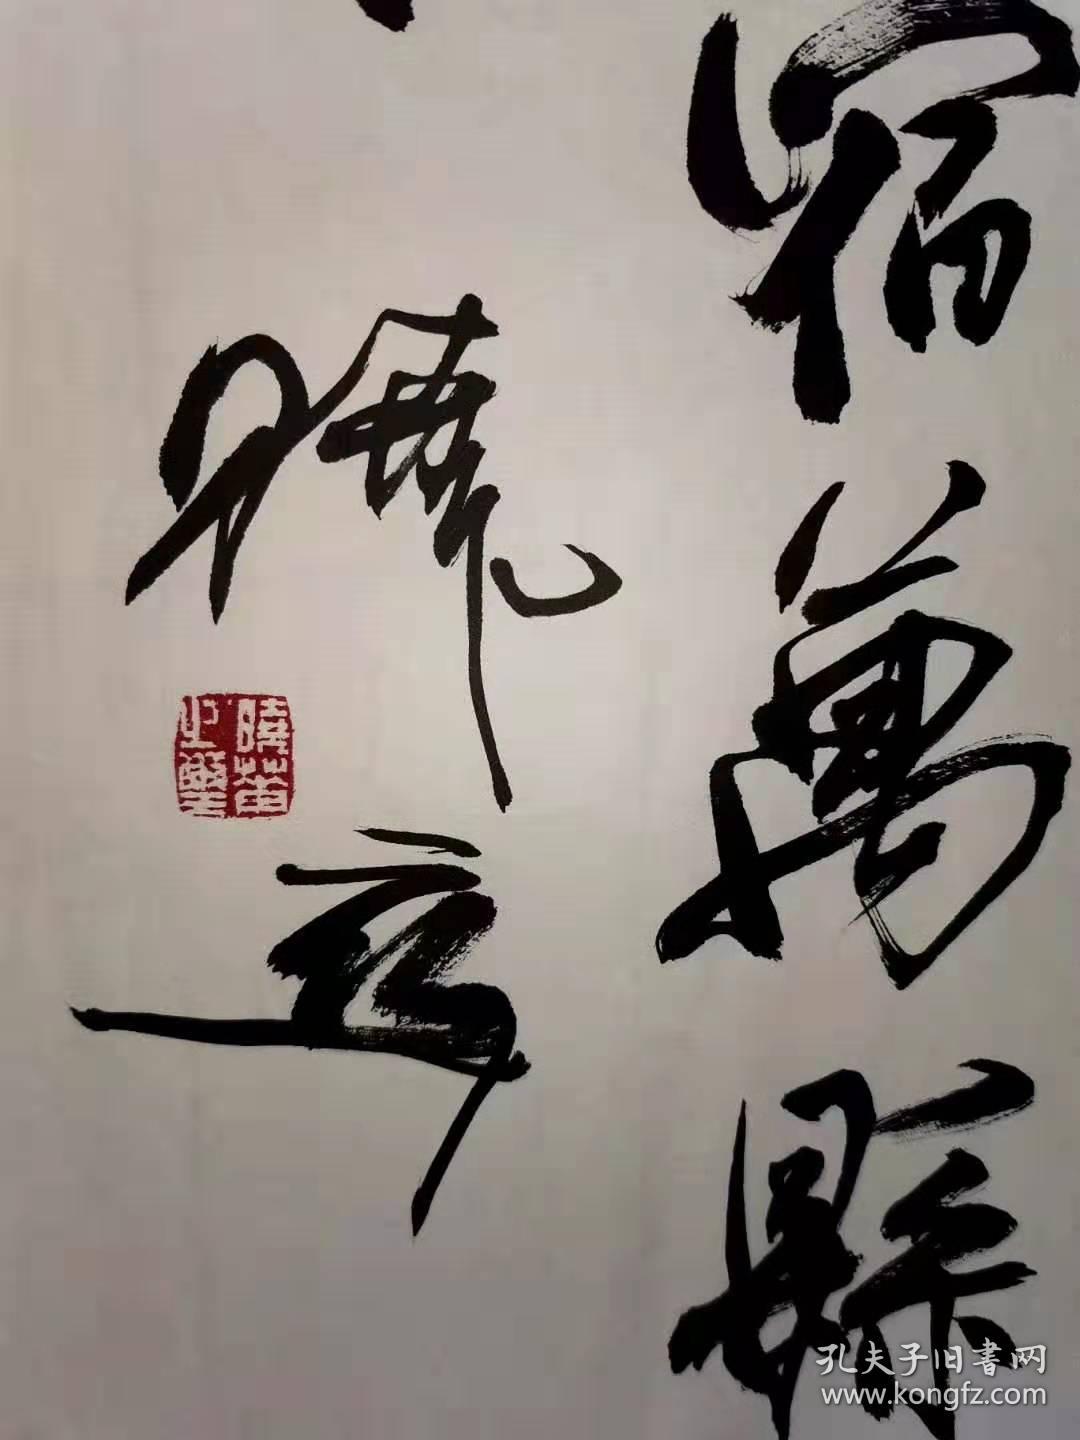 宿萬縣
曉
之璽
孔夫子旧書网
www.kongfz.com